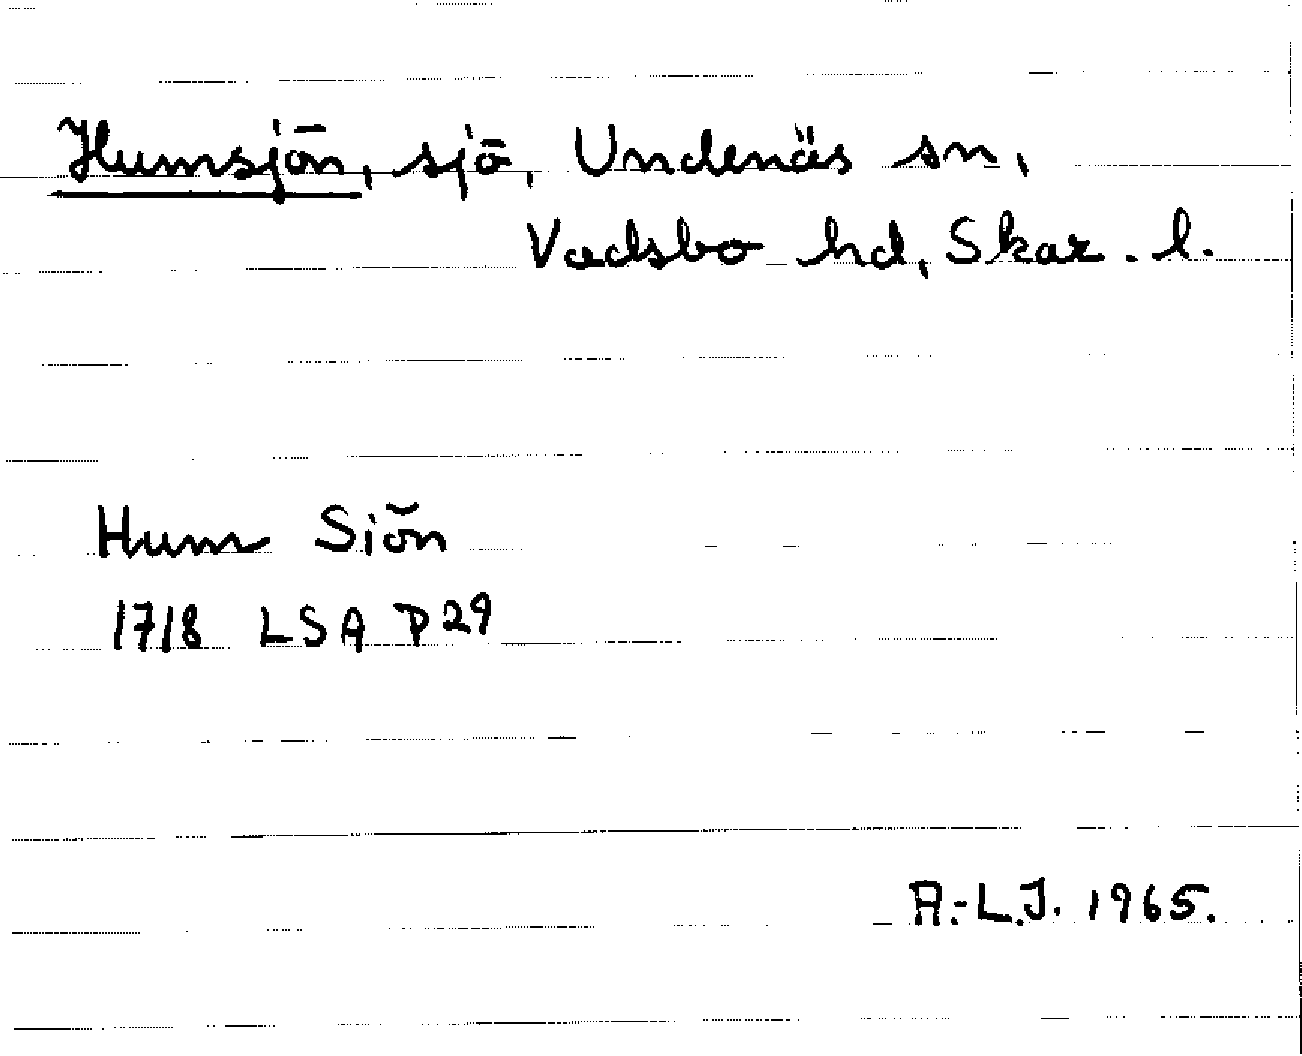 Humsjön, sjö, Undenäs sn,
Vadsbo hd, Skar. l.
Hum Siön
1718 LSA P29
A.-L.J. 1965.